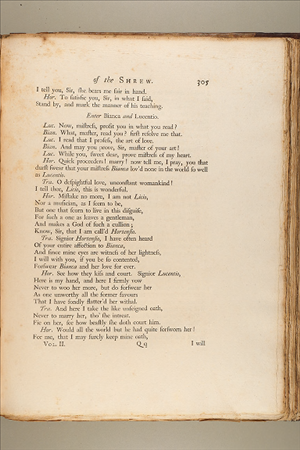 of the SHREW. 305
I tell you, Sir, ſhe bears me fair in hand.
Hor. To ſatisfie you, Sir, in what I ſaid,
Stand by, and mark the manner of his teaching.
Enter Bianca and Lucentio.
Luc. Now, miſtreſs, profit you in what you read?
Bian. What, maſter, read you? firſt reſolve me that.
Luc. I read that I profeſs, the art of love.
Bian. And may you prove, Sir, maſter of your art!
Luc. While you, ſweet dear, prove miſtreſs of my heart.
Hor. Quick proceeders! marry! now tell me, I pray, you that
durſt ſwear that your miſtreſs Bianca lov'd none in the world ſo well
as Lucentio.
Tra. O deſpightful love, unconſtant womankind!
I tell thee, Licio, this is wonderful.
Hor. Miſtake no more, I am not Licio,
Nor a muſician, as I ſeem to be,
But one that ſcorn to live in this diſguiſe,
For ſuch a one as leaves a gentleman,
And makes a God of ſuch a cullion;
Know, Sir, that I am call'd Hortenſio.
Tra. Signior Hortenſio, I have often heard
Of your entire affection to Bianca,
And ſince mine eyes are witneſs of her lightneſs,
I will with you, if you be ſo contented,
Forſwear Bianca and her love for ever.
Hor. See how they kiſs and court. Signior Lucentio,
Here is my hand, and here I firmly vow
Never to woo her more, but do forſwear her
As one unworthy all the former favours
That I have fondly flatter'd her withal.
Tra. And here I take the like unfeigned oath,
Never to marry her, tho' ſhe intreat.
Fie on her, ſee how beaſtly ſhe doth court him.
Hor. Would all the world but he had quite forſworn her!
For me, that I may ſurely keep mine oath,
VOL. II. Q q I will